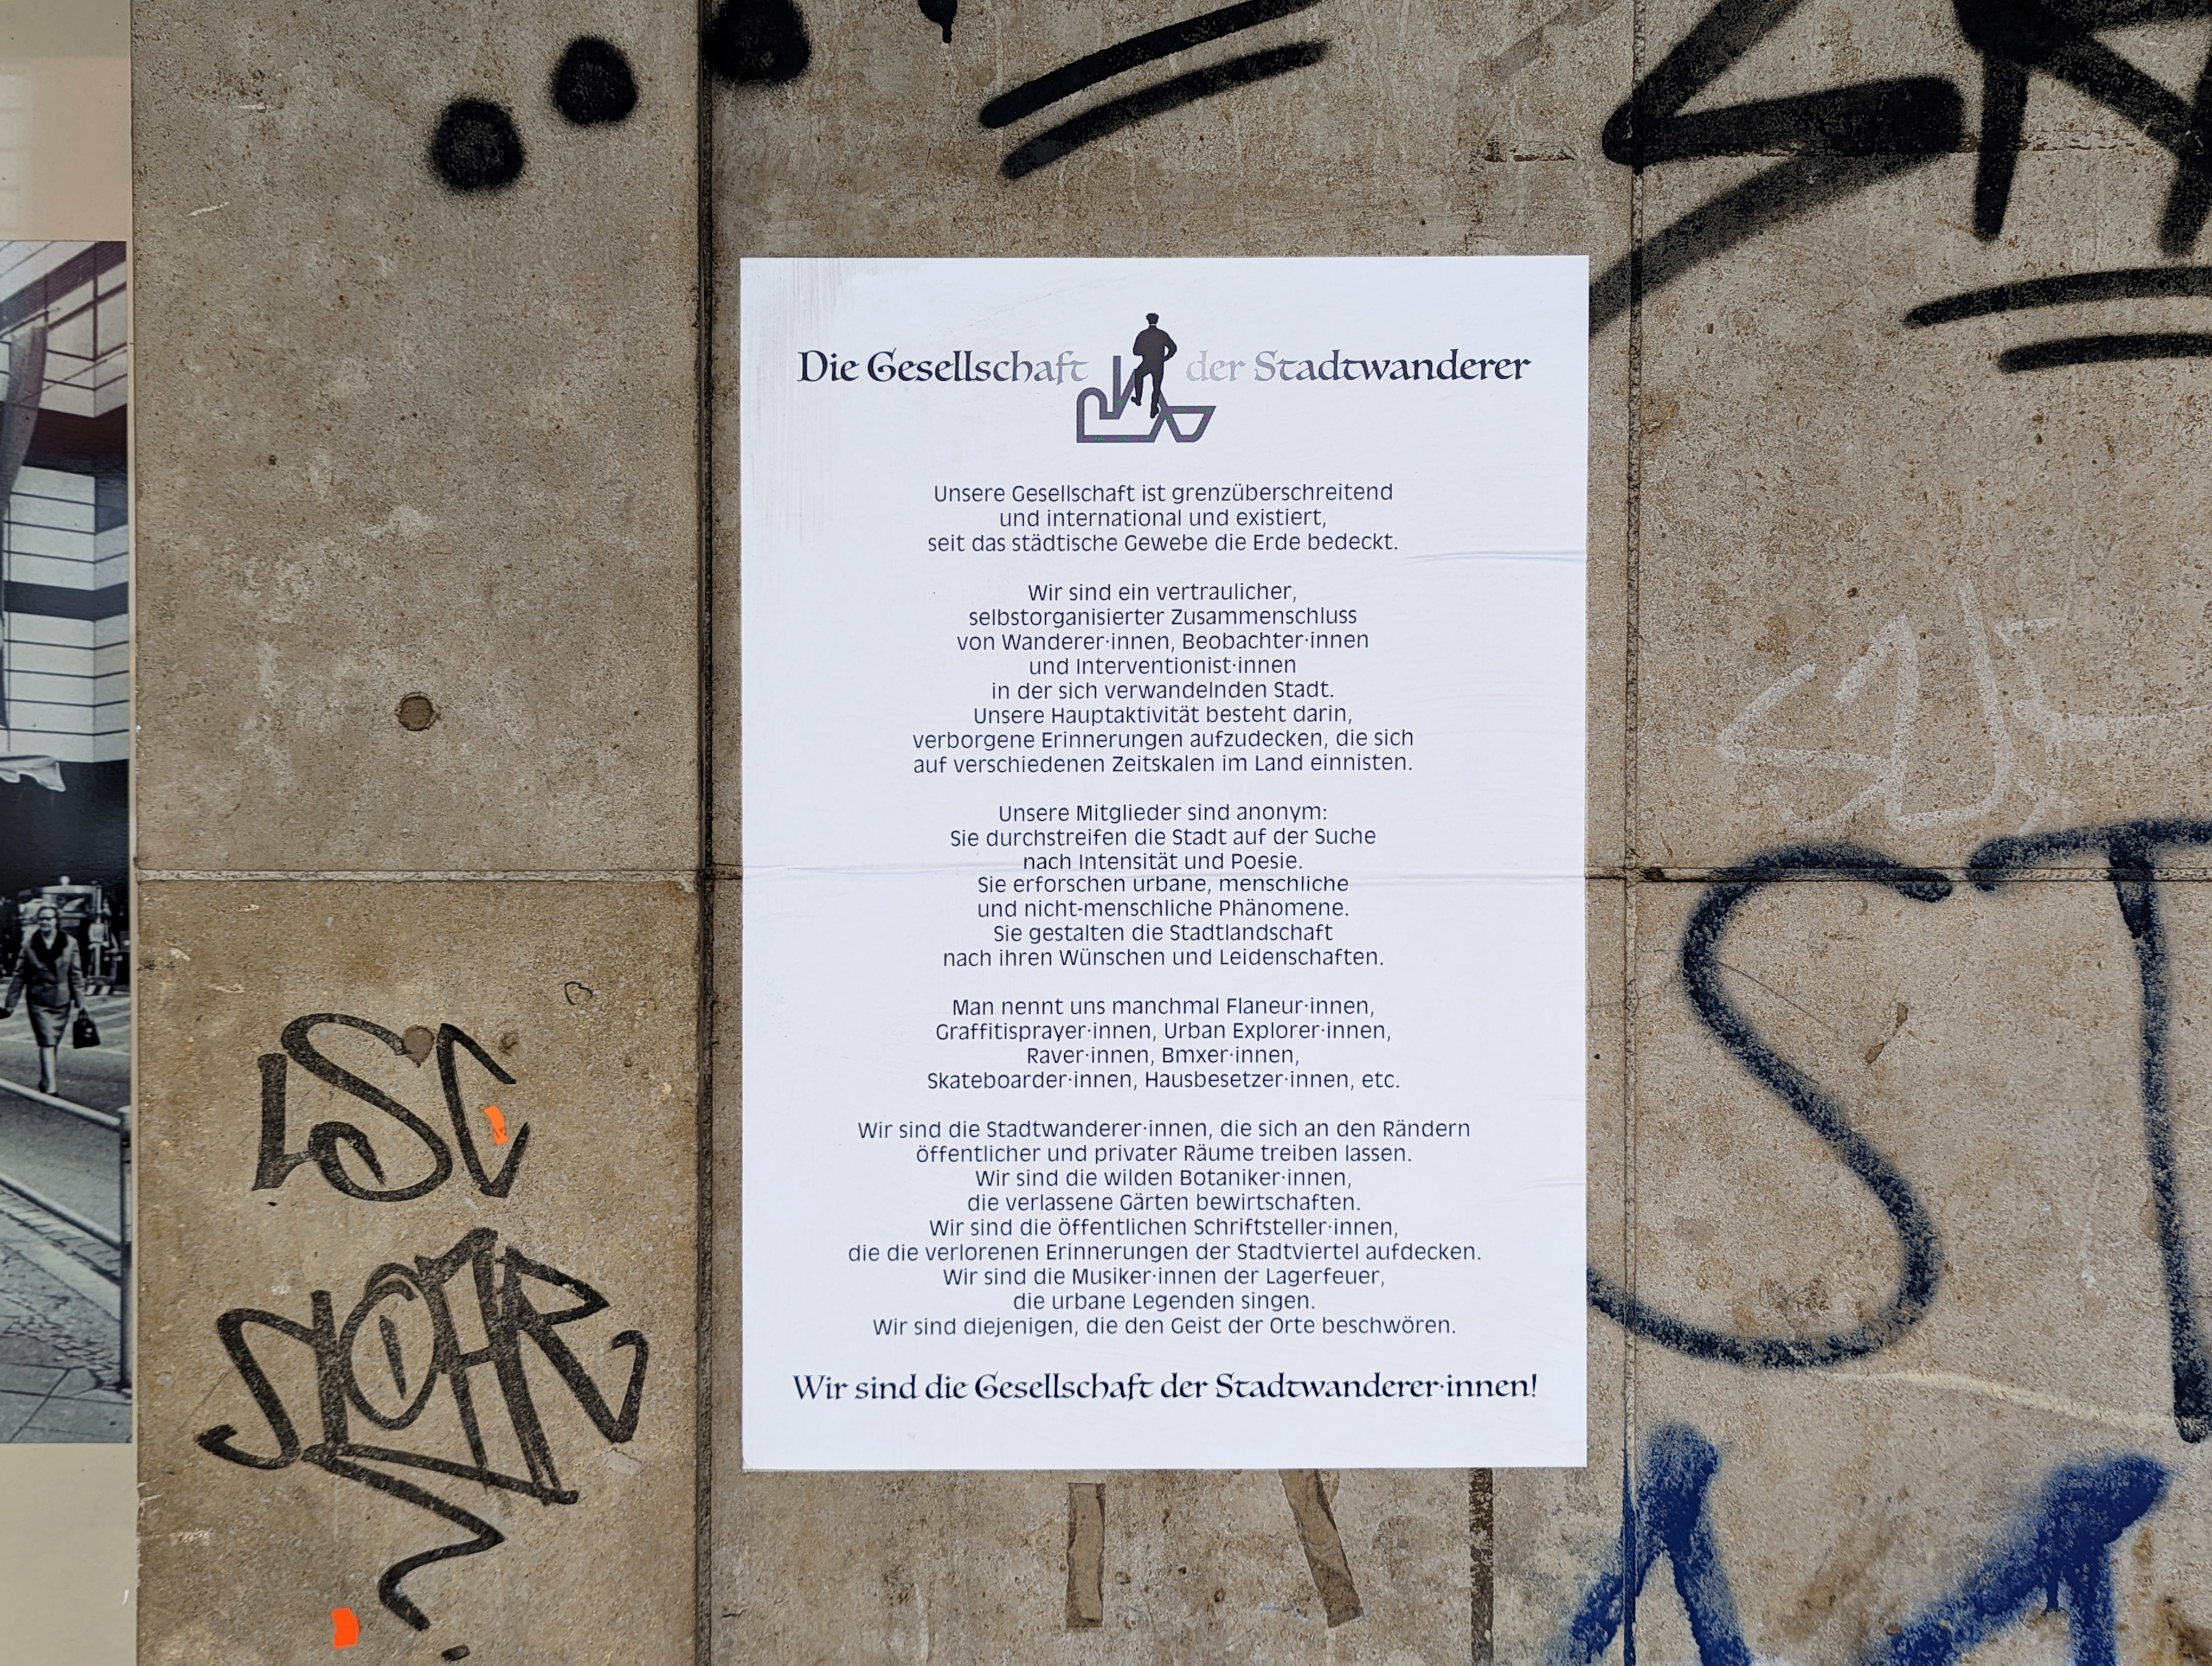 Die Gesellschaft der Stadtwanderer
Unsere Gesellschaft ist grenzüberschreitend
und international und existiert,
seit das städtische Gewebe die Erde bedeckt.
Wir sind ein vertraulicher,
selbstorganisierter Zusammenschluss
von Wanderer·innen, Beobachter·innen
und Interventionist·innen
in der sich verwandelnden Stadt.
Unsere Hauptaktivität besteht darin,
verborgene Erinnerungen aufzudecken, die sich
auf verschiedenen Zeitskalen im Land einnisten.
Unsere Mitglieder sind anonym:
Sie durchstreifen die Stadt auf der Suche
nach Intensität und Poesie.
Sie erforschen urbane, menschliche
und nicht-menschliche Phänomene.
Sie gestalten die Stadtlandschaft
nach ihren Wünschen und Leidenschaften.
Man nennt uns manchmal Flaneur·innen,
Graffitisprayer·innen, Urban Explorer·innen,
Raver·innen, Bmxer·innen,
Skateboarder·innen, Hausbesetzer·innen, etc.
Wir sind die Stadtwanderer·innen, die sich an den Rändern
öffentlicher und privater Räume treiben lassen.
Wir sind die wilden Botaniker·innen,
die verlassene Gärten bewirtschaften.
Wir sind die öffentlichen Schriftsteller·innen,
die die verlorenen Erinnerungen der Stadtviertel aufdecken.
Wir sind die Musiker·innen der Lagerfeuer,
die urbane Legenden singen.
Wir sind diejenigen, die den Geist der Orte beschwören.
Wir sind die Gesellschaft der Stadtwanderer·innen!
LSC
ST